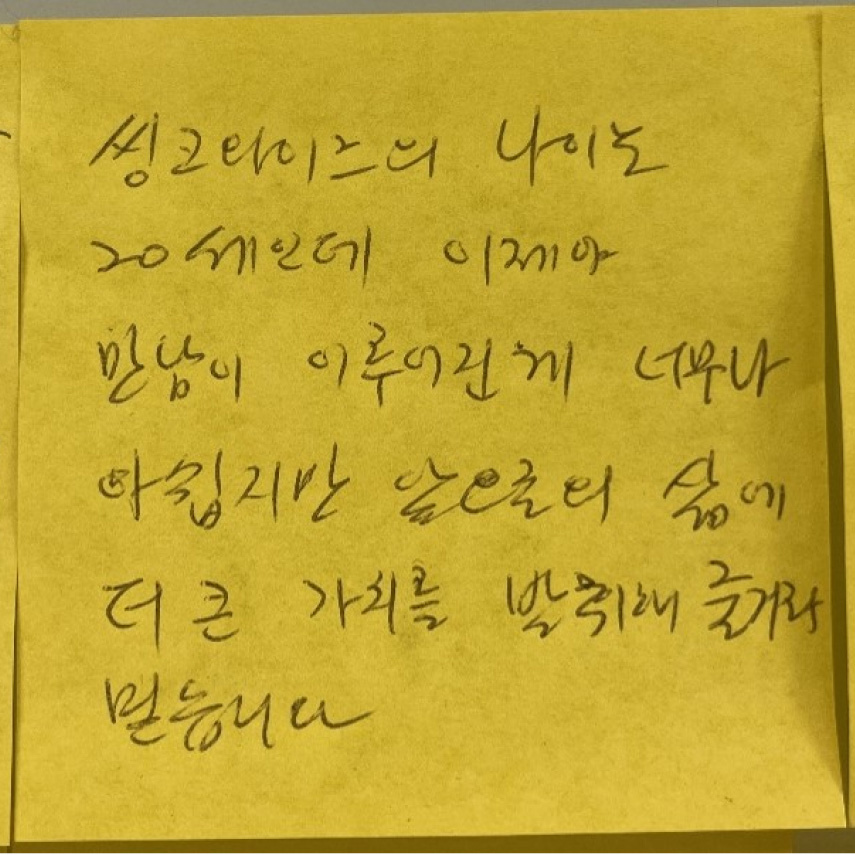 씽크와이즈의 나이는
20세인데 이제야
만남이 이루어진게 너무나
아쉽지만 앞으로의 삶에
더 큰 가치를 발휘해 줄거라
믿습니다